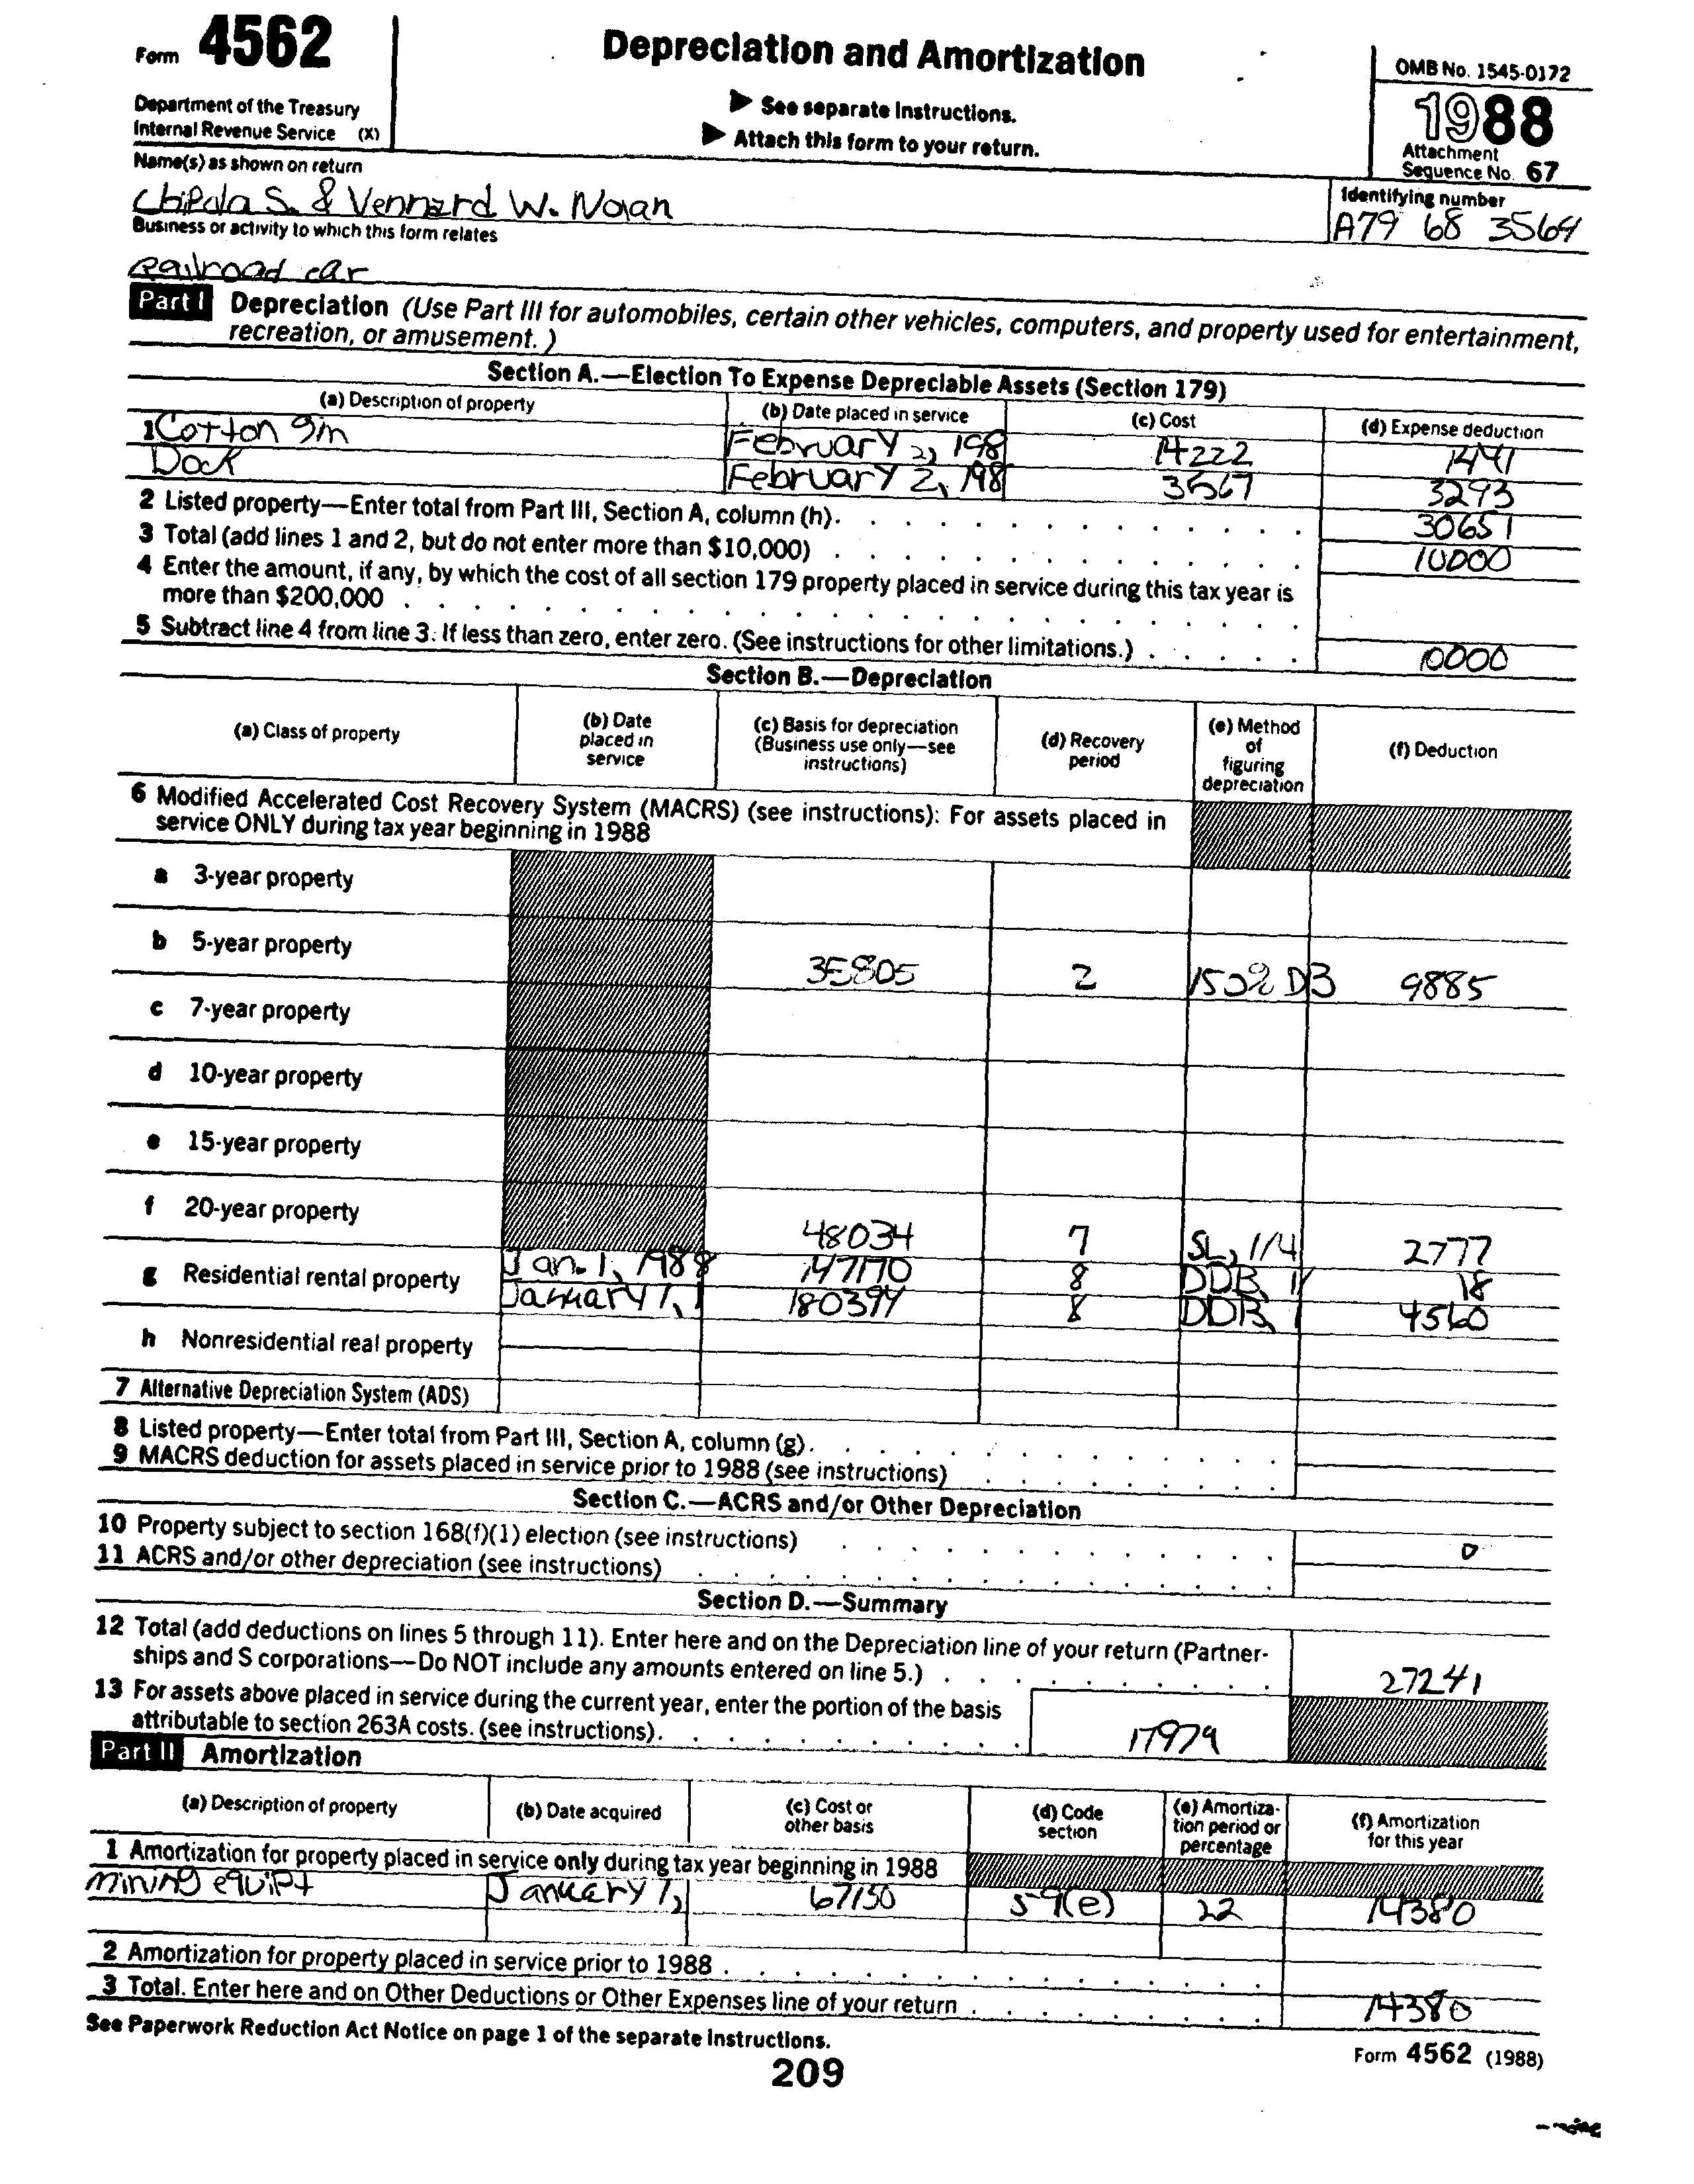 Form 4562
Department of the Treasury
Internal Revenue Service (X)
Depreciation and Amortization
▶ See separate Instructions.
▶ Attach this form to your return.
OMB No. 1545-0172
1988
Attachment
Sequence No. 67
Name(s) as shown on return
Identifying number
S. & Vennard W. Nolan
A79 68 3564
Business or activity to which this form relates
railroad car
Part I Depreciation (Use Part III for automobiles, certain other vehicles, computers, and property used for entertainment,
recreation, or amusement.)
Section A.—Election To Expense Depreciable Assets (Section 179)
(a) Description of property (b) Date placed in service (c) Cost (d) Expense deduction
1 Cotton gin February 2, 198 14222 1441
Dock February 2, 198 3567 3293
2 Listed property—Enter total from Part III, Section A, column (h). 30651
3 Total (add lines 1 and 2, but do not enter more than $10,000) 10000
4 Enter the amount, if any, by which the cost of all section 179 property placed in service during this tax year is
more than $200,000
5 Subtract line 4 from line 3. If less than zero, enter zero. (See instructions for other limitations.) 10000
Section B.—Depreciation
(a) Class of property
(b) Date placed in service
(c) Basis for depreciation (Business use only—see instructions)
(d) Recovery period
(e) Method of figuring depreciation
(f) Deduction
6 Modified Accelerated Cost Recovery System (MACRS) (see instructions): For assets placed in
service ONLY during tax year beginning in 1988
a 3-year property
b 5-year property 35805 2 150% DB 9885
c 7-year property
d 10-year property
e 15-year property
f 20-year property 48034 7 SL, 1/4 2777
g Residential rental property Jan. 1, 1988 147170 8 DDB, 1/ 18
January 1, 1 180394 8 DDB, 1 4560
h Nonresidential real property
7 Alternative Depreciation System (ADS)
8 Listed property—Enter total from Part III, Section A, column (g).
9 MACRS deduction for assets placed in service prior to 1988 (see instructions)
Section C.—ACRS and/or Other Depreciation
10 Property subject to section 168(f)(1) election (see instructions) 0
11 ACRS and/or other depreciation (see instructions)
Section D.—Summary
12 Total (add deductions on lines 5 through 11). Enter here and on the Depreciation line of your return (Partner-
ships and S corporations—Do NOT include any amounts entered on line 5.) 27241
13 For assets above placed in service during the current year, enter the portion of the basis
attributable to section 263A costs. (see instructions). 17979
Part II Amortization
(a) Description of property
(b) Date acquired
(c) Cost or other basis
(d) Code section
(e) Amortiza-tion period or percentage
(f) Amortization for this year
1 Amortization for property placed in service only during tax year beginning in 1988
mining equipt January 1, 67150 59(e) 22 14380
2 Amortization for property placed in service prior to 1988
3 Total. Enter here and on Other Deductions or Other Expenses line of your return 14380
See Paperwork Reduction Act Notice on page 1 of the separate Instructions.
Form 4562 (1988)
209